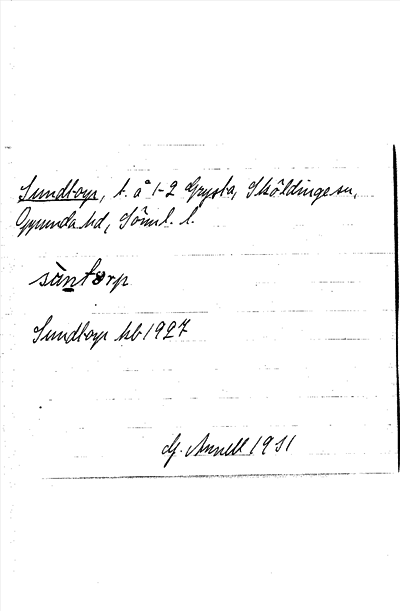 Sundtorp, t. å 1-2 Grysta, Sköldinge sn,
Oppunda hd, Söml. l.
sùntorp
Sundtorp hb 1927
G. Annell 1931